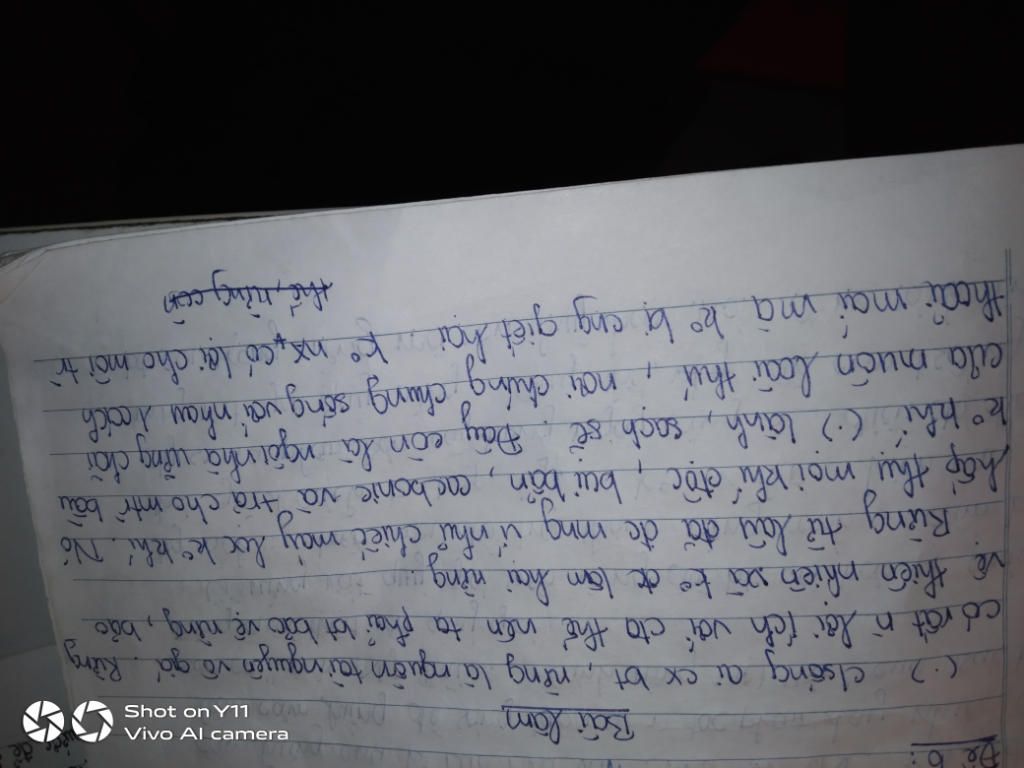 Đề 6:
Bài làm
(.) c/sống ai cx bt, rừng là nguồn tài nguyên vô giá. Rừng
có rất n̄ lợi ích với cta thế nên ta phải bt bảo vệ rừng, bảo
vệ thiên nhiên và k° đc làm hại rừng
Rừng từ lâu đã đc mng ví như chiếc máy lọc k° khí. Nó
hấp thụ mọi khí độc, bụi bẩn, cacbonic và trả cho mtr bầu
k° khí (.) lành, sạch sẽ. Đây còn là ngôi nhà vững chãi
của muôn loài thú, nơi chúng chung sống với nhau 1 cách
thoải mái mà k° bị cng giết hại. K° nx, có lợi cho môi tr
thế, rừng còn
Shot on Y11
Vivo AI camera